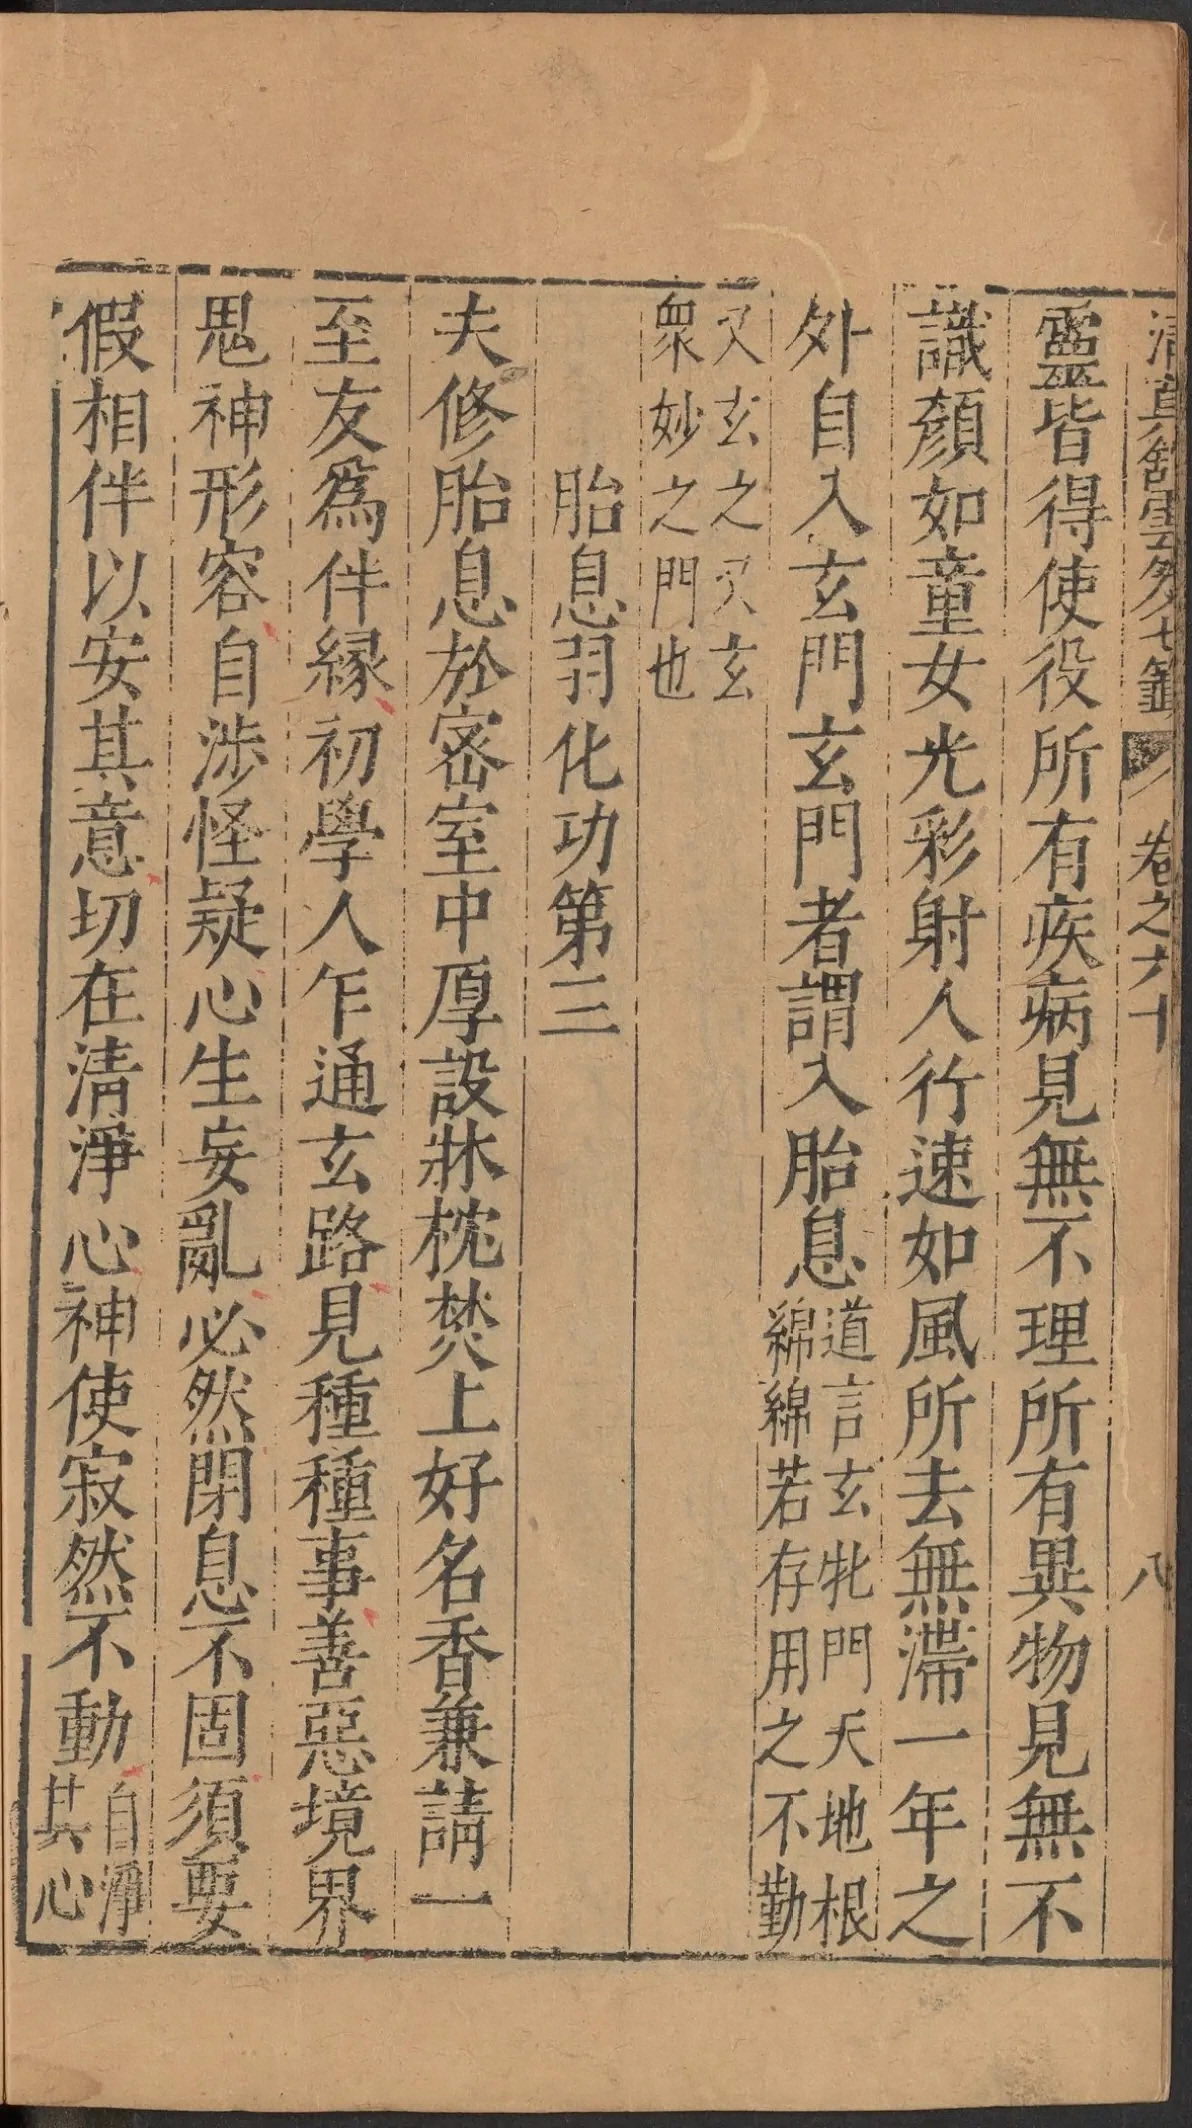 清真館雲笈七籤 卷之六十 八
靈皆得使役所有疾病見無不理所有異物見無不
識顏如童女光彩射人行速如風所去無滯一年之
外自入玄門玄門者謂入胎息道言玄牝門天地根
綿綿若存用之不勤
又玄之又玄
衆妙之門也
胎息羽化功第三
夫修胎息於密室中厚設牀枕焚上好名香兼請一
至友爲伴緣初學人乍通玄路見種種事善惡境界
鬼神形容自涉怪疑心生妄亂必然閉息不固須要
假相伴以安其意切在清淨心神使寂然不動自淨
其心